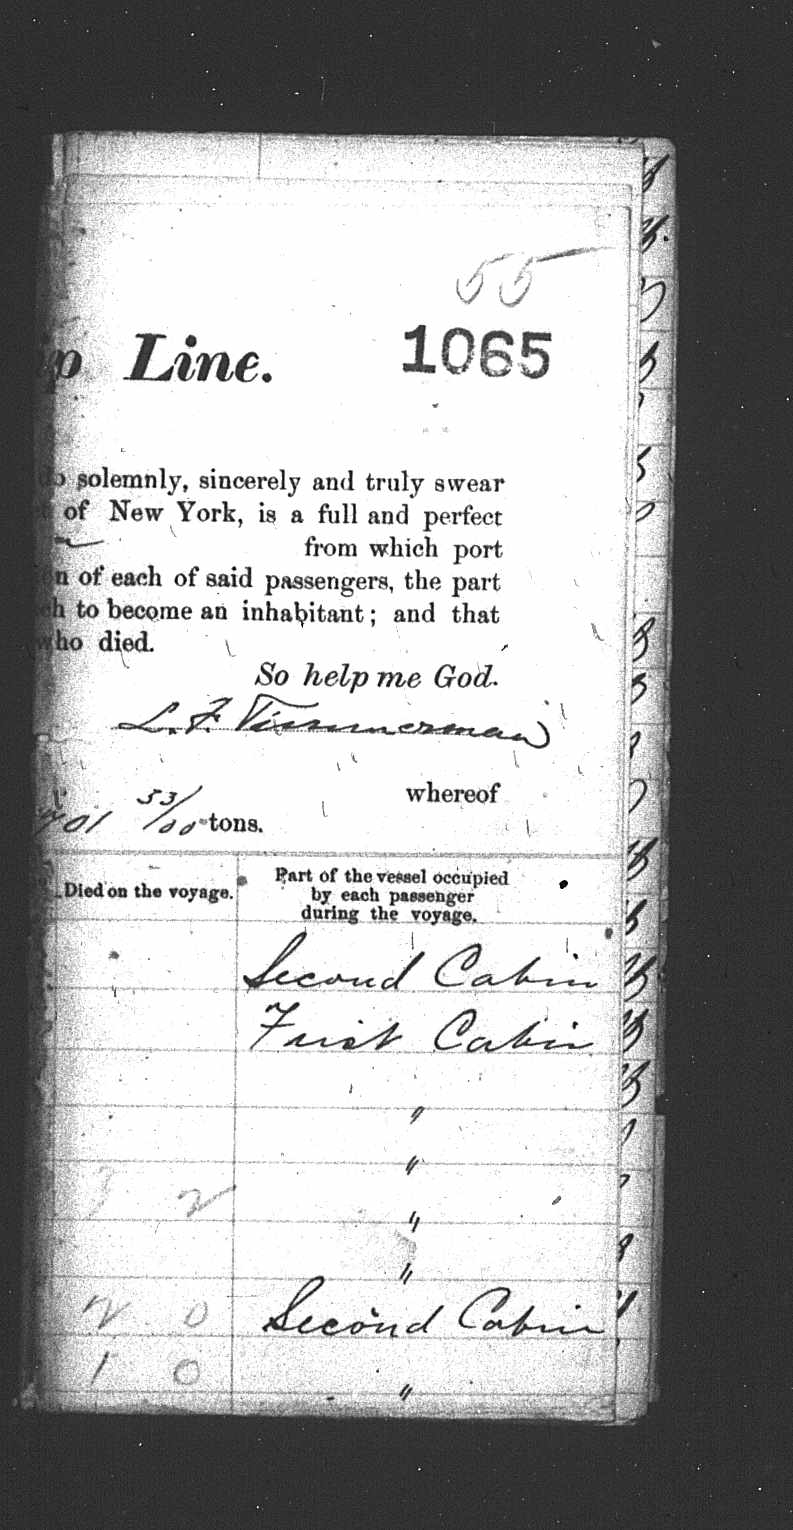 55
Line.
1065
solemnly, sincerely and truly swear
of New York, is a full and perfect
from which port
of each of said passengers, the part
to become an inhabitant; and that
who died.
So help me God.
L. F. Timmerman
whereof
701 53/100 tons.
Died on the voyage.
Part of the vessel occupied
by each passenger
during the voyage.
Second Cabin
First Cabin
"
"
2
"
"
2 0 Second Cabin
1 0
"